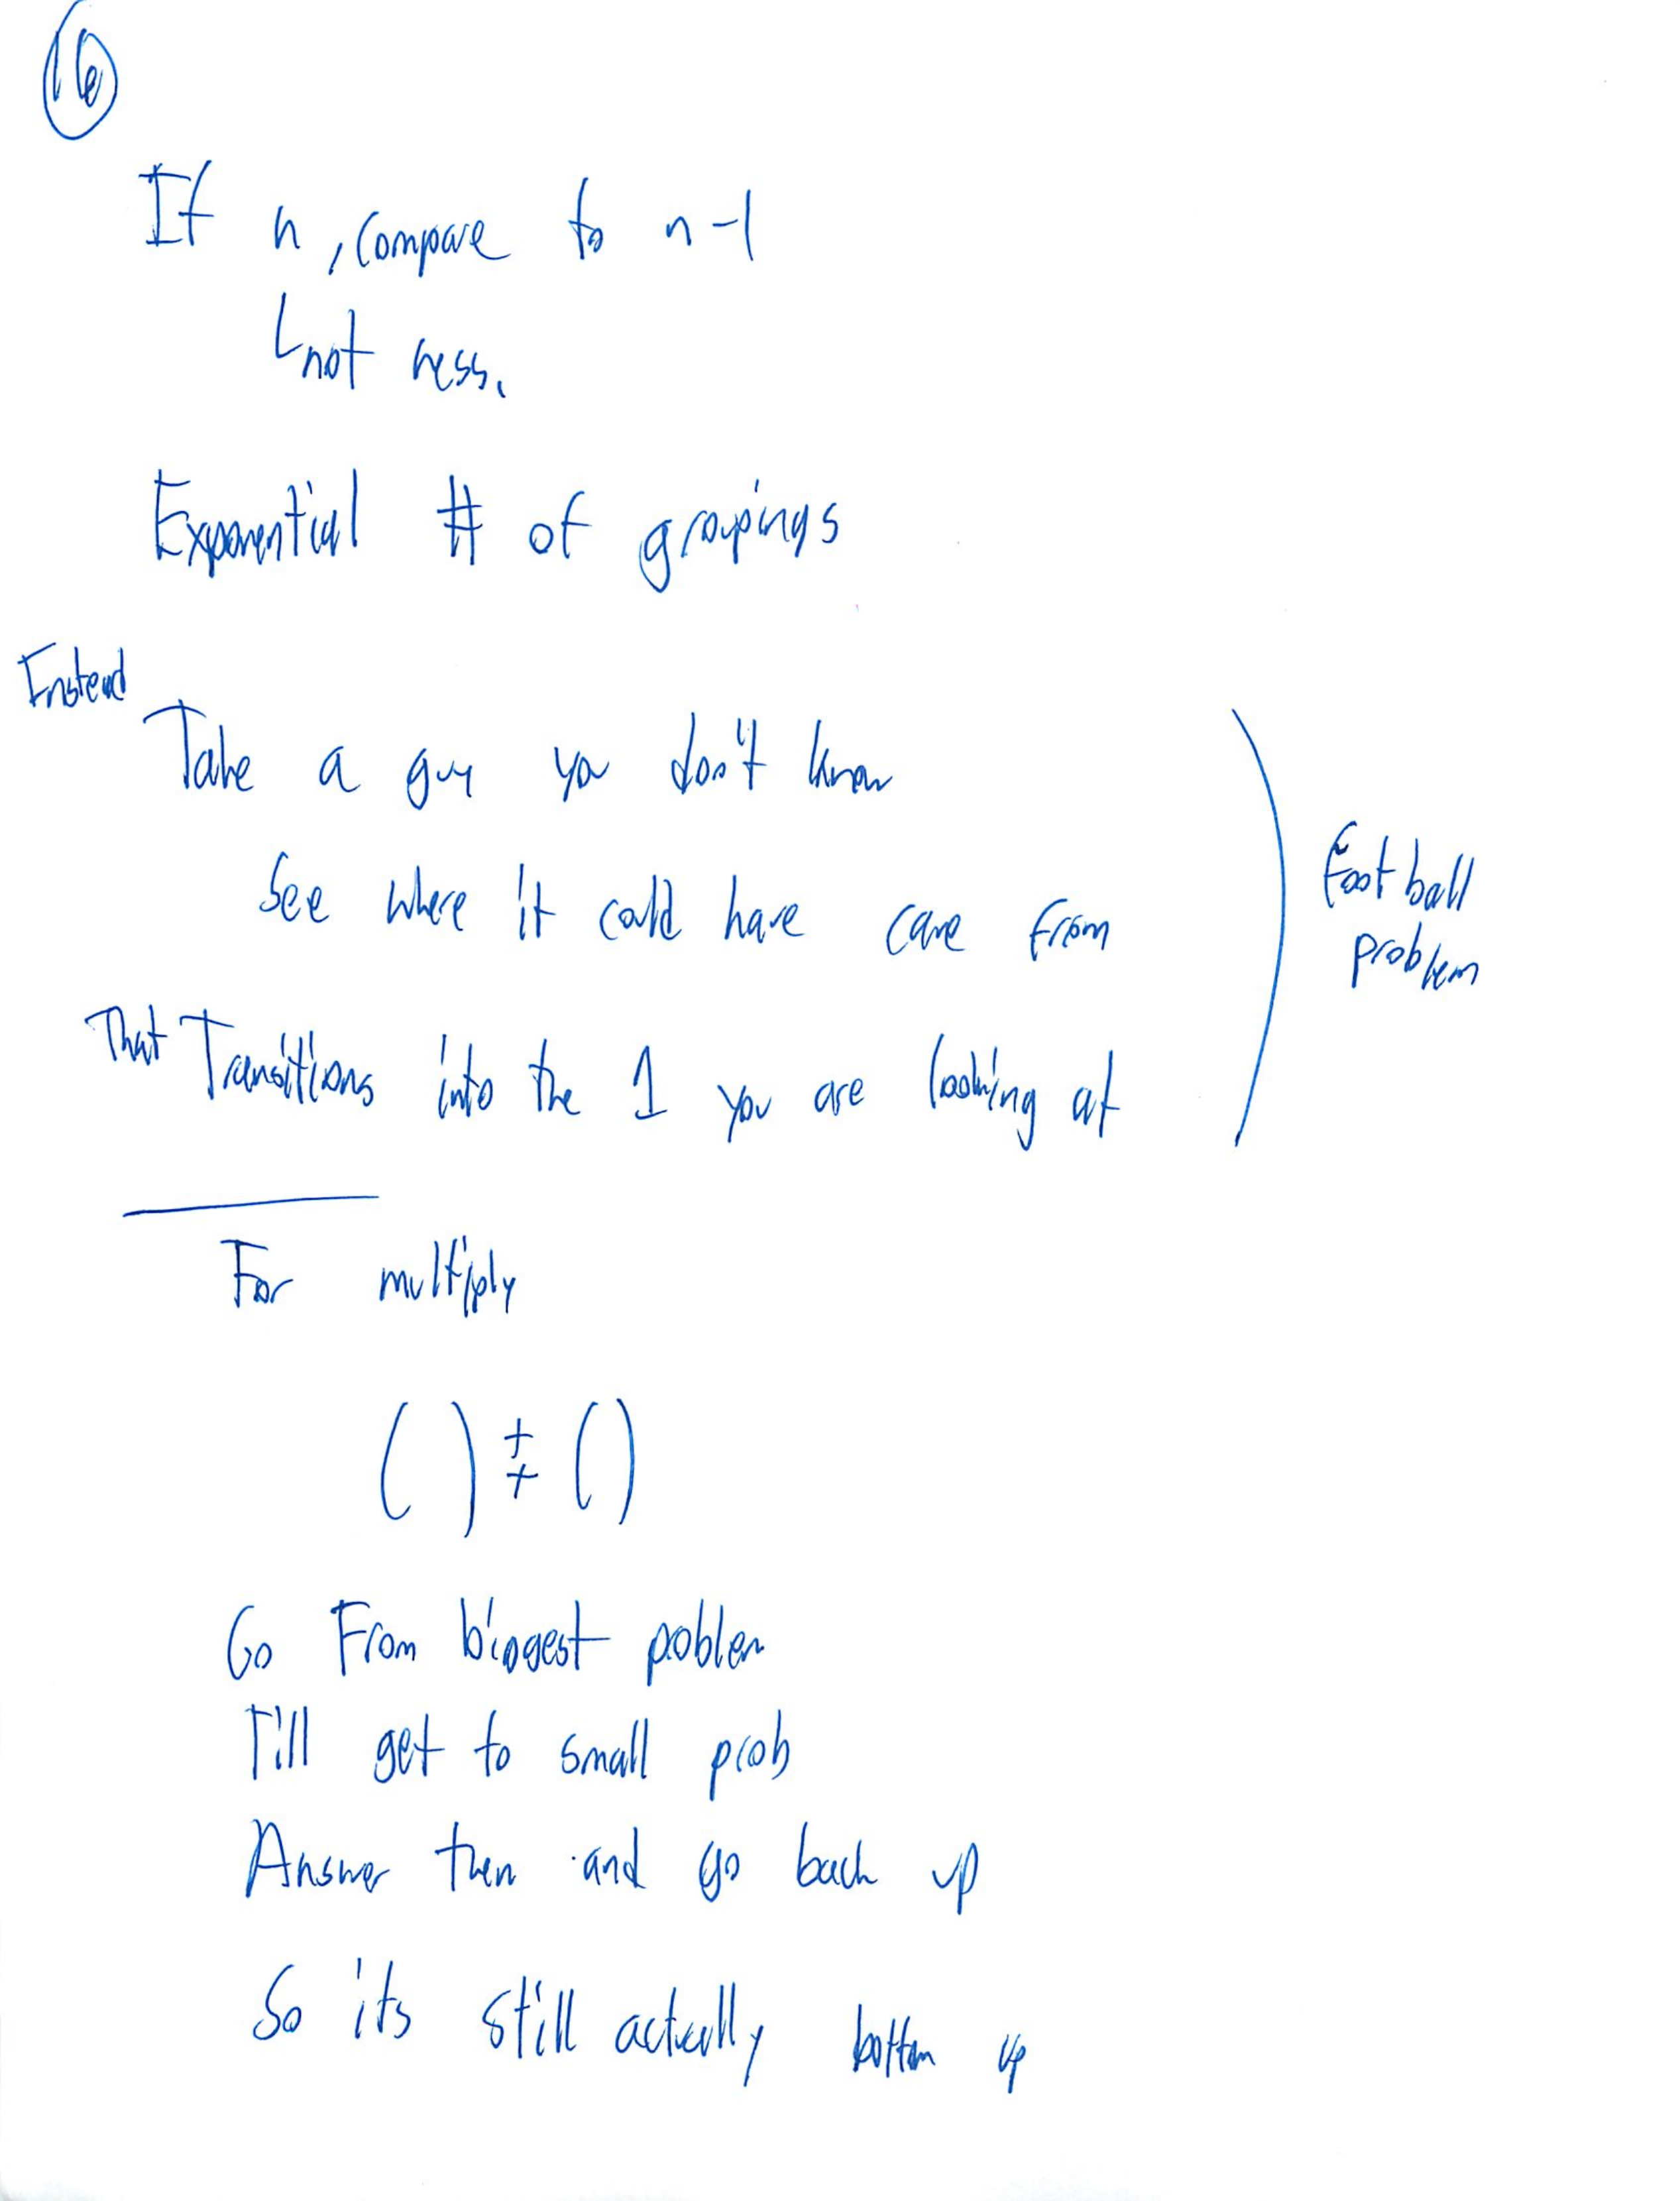 16
If n, compare to n-1
not ness.
Exponential # of groupings
Instead
Take a guy you don't know
See where it could have came from
That Transitions into the 1 you are looking at
Foot ball
problem
For multiply
( ) + + ( )
Go From biggest problem
Till get to small prob
Answer then and go back up
So its still actually bottom up